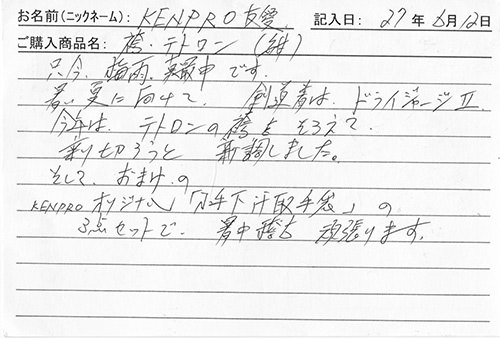 お名前(ニックネーム): KENPRO友愛 記入日: 27年6月12日
ご購入商品名: 袴・テトロン(紺)
只今、梅雨、真最中です。
暑い夏に向けて、剣道着は、ドライジャージⅡ
今年は、テトロンの袴をそろえて、
乗り切ろうと新調しました。
そして、おまけの
KENPROオリジナル「分手下汗取手袋」の
3点セットで、暑中稽古頑張ります。